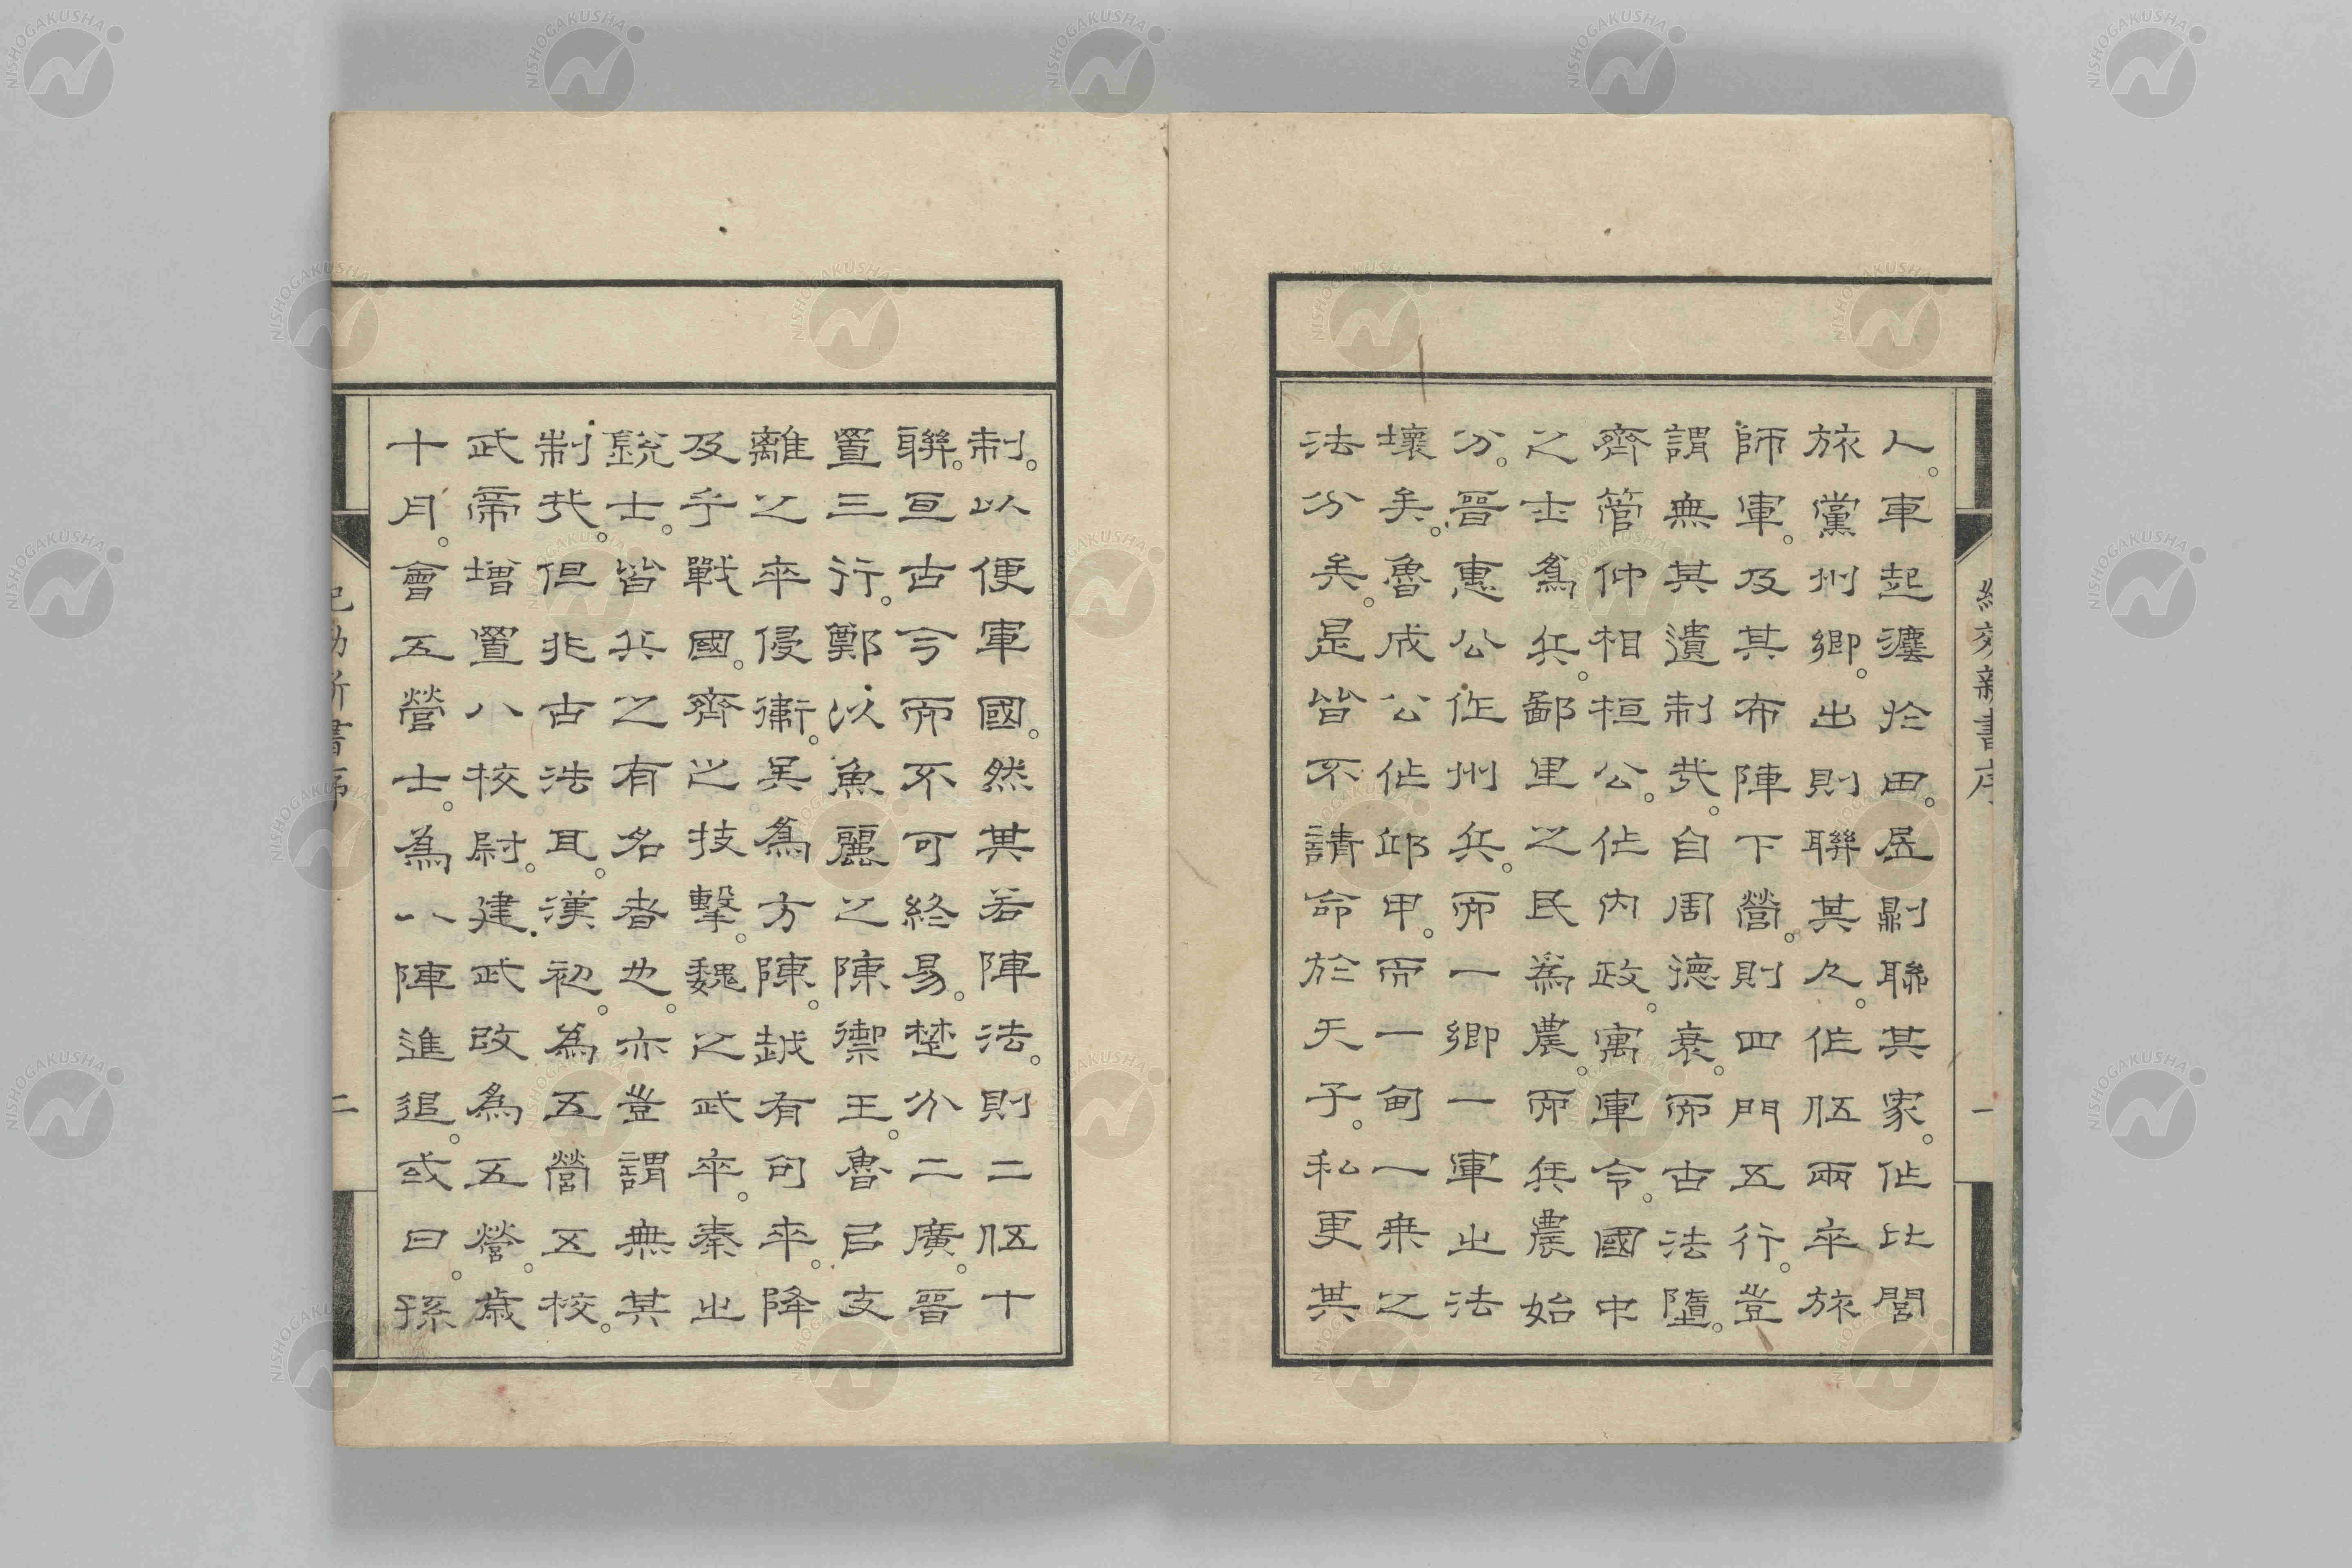 人。車起瀍於田。居則聯其家。作比閭
旅黨州鄉。出則聯其人。作伍兩卒旅
師軍。及其布陣下營。則四門五行。豈
謂無其遺制哉。自周德衰。而古法墮。
齊管仲相桓公。作內政。寓軍令。國中
之士為兵。鄙里之民為農。而兵農始
分。晉惠公作州兵。而一鄉一軍之法
壞矣。魯成公作邱甲。而一甸一乘之
法分矣。是皆不請命於天子。私更其
紀効新書序
一
制。以便軍國。然其若陣法。則二伍十
聯。亙古今而不可終易。楚分二廣。晉
置三行。鄭以魚麗之陳禦王。魯昌支
離之卒侵衛。吴為方陳。越有句卒。降
及乎戰國。齊之技擊。魏之武卒。秦之
銳士。皆兵之有名者也。亦豈謂無其
制哉。但非古法耳。漢初。為五營五校。
武帝增置八校尉。建武改為五營。歲
十月。會五營士。為八陣進退。或曰。孫
紀効新書序
二
NISHOGAKUSHA